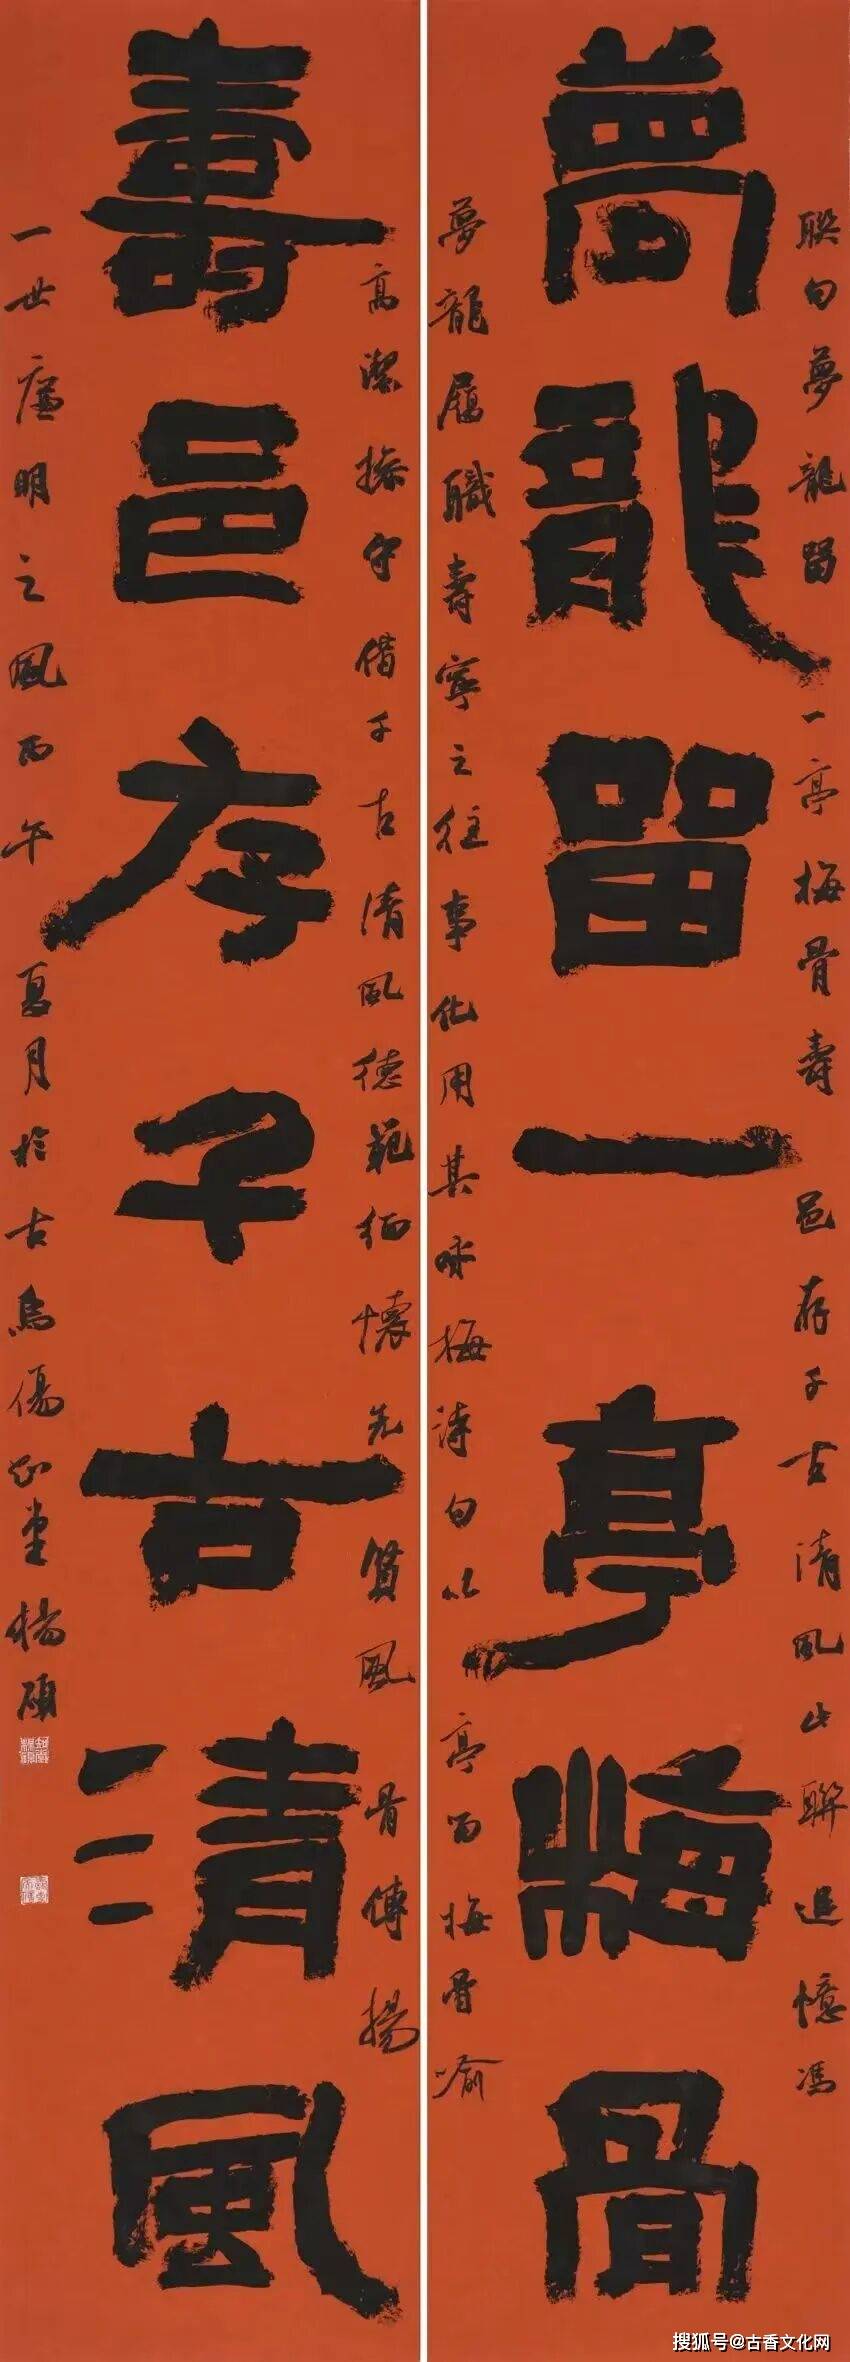 夢龍留一亭梅骨
壽邑存千古清風
聯句夢龍留一亭梅骨壽邑存千古清風此聯追憶馮
夢龍履職壽寧之往事化用其咏梅詩句以亭留梅骨喻
高潔操守借千古清風德範緬懷先賢風骨傳揚
一世廉明之風丙午夏月於古烏傷 堂楊碩
搜狐号@古香文化网